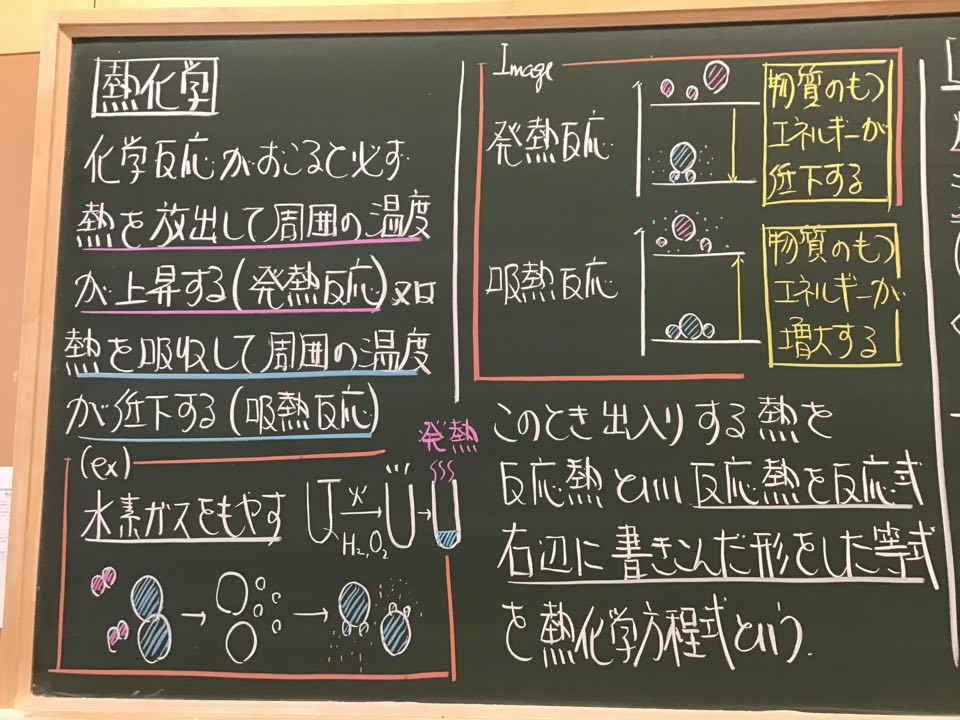 熱化学
化学反応がおこると必ず
熱を放出して周囲の温度
が上昇する(発熱反応)又は
熱を吸収して周囲の温度
が低下する(吸熱反応)
(ex)
水素ガスをもやす
火
H₂,O₂
発熱
Image
発熱反応
物質のもつ
エネルギーが
低下する
吸熱反応
物質のもつ
エネルギーが
増大する
このとき出入りする熱を
反応熱といい反応熱を反応式
右辺に書きこんだ形をした等式
を熱化学方程式という.